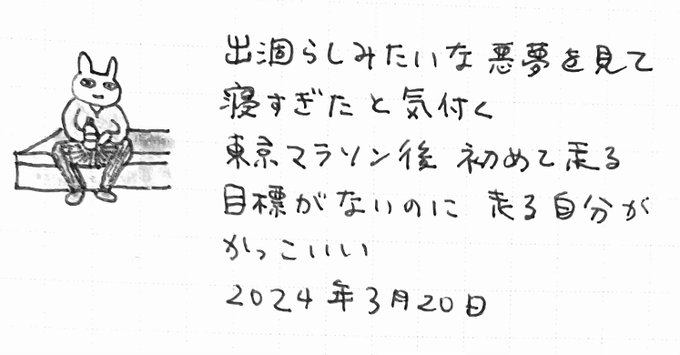 出涸らしみたいな悪夢を見て
寝すぎたと気付く
東京マラソン後 初めて走る
目標がないのに 走る自分が
かっこいい
2024年3月20日